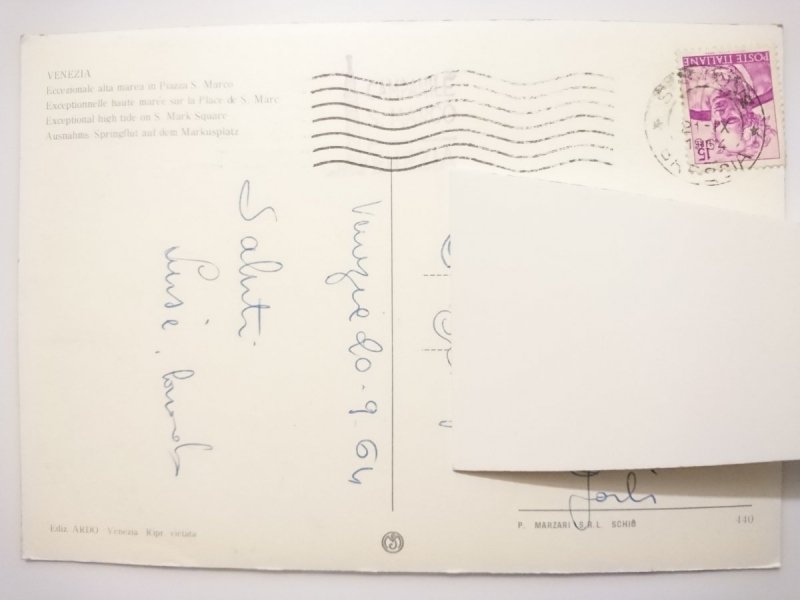 VENEZIA
Eccezionale alta marea in Piazza S. Marco
Exceptionnelle haute marée sur la Place de S. Marc
Exceptional high tide on S. Mark Square
Ausnahms Springflut auf dem Markusplatz
POSTE ITALIANE
1964
BRESCIA
L. 15
Venezia 20-9-64
Saluti
Forlì
Ediz ARDO Venezia Ripr. vietata
P. MARZARI S.R.L. SCHIO
440